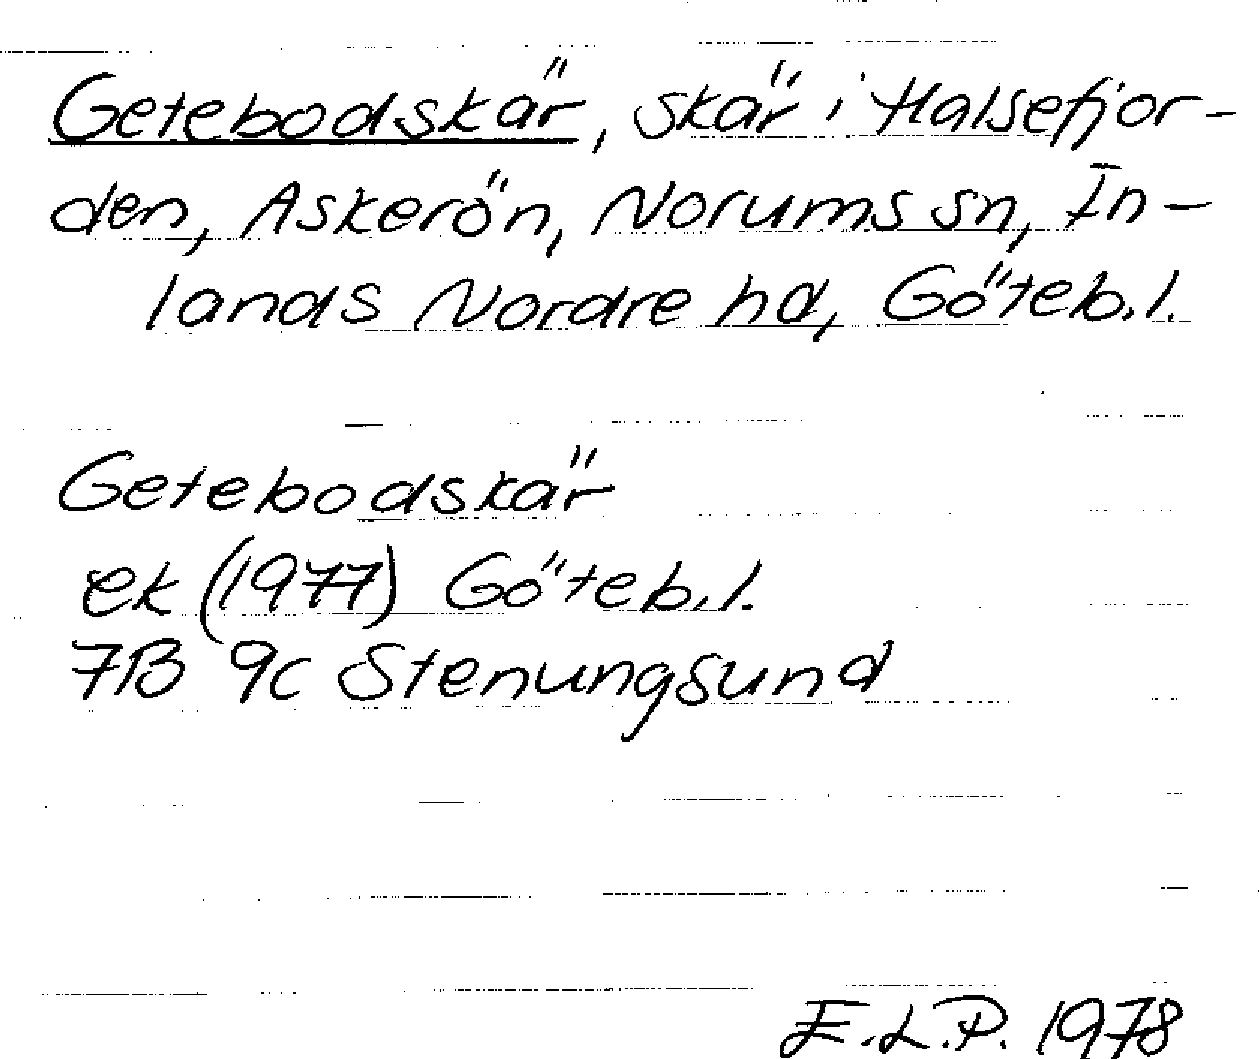 Getebodskär, skär i Halsefjor-
den, Askerön, Norums sn, In-
lands Nordre hd, Göteb.l.
Getebodskär
ek (1977) Göteb.l.
7B 9c Stenungsund
E.L.P. 1978